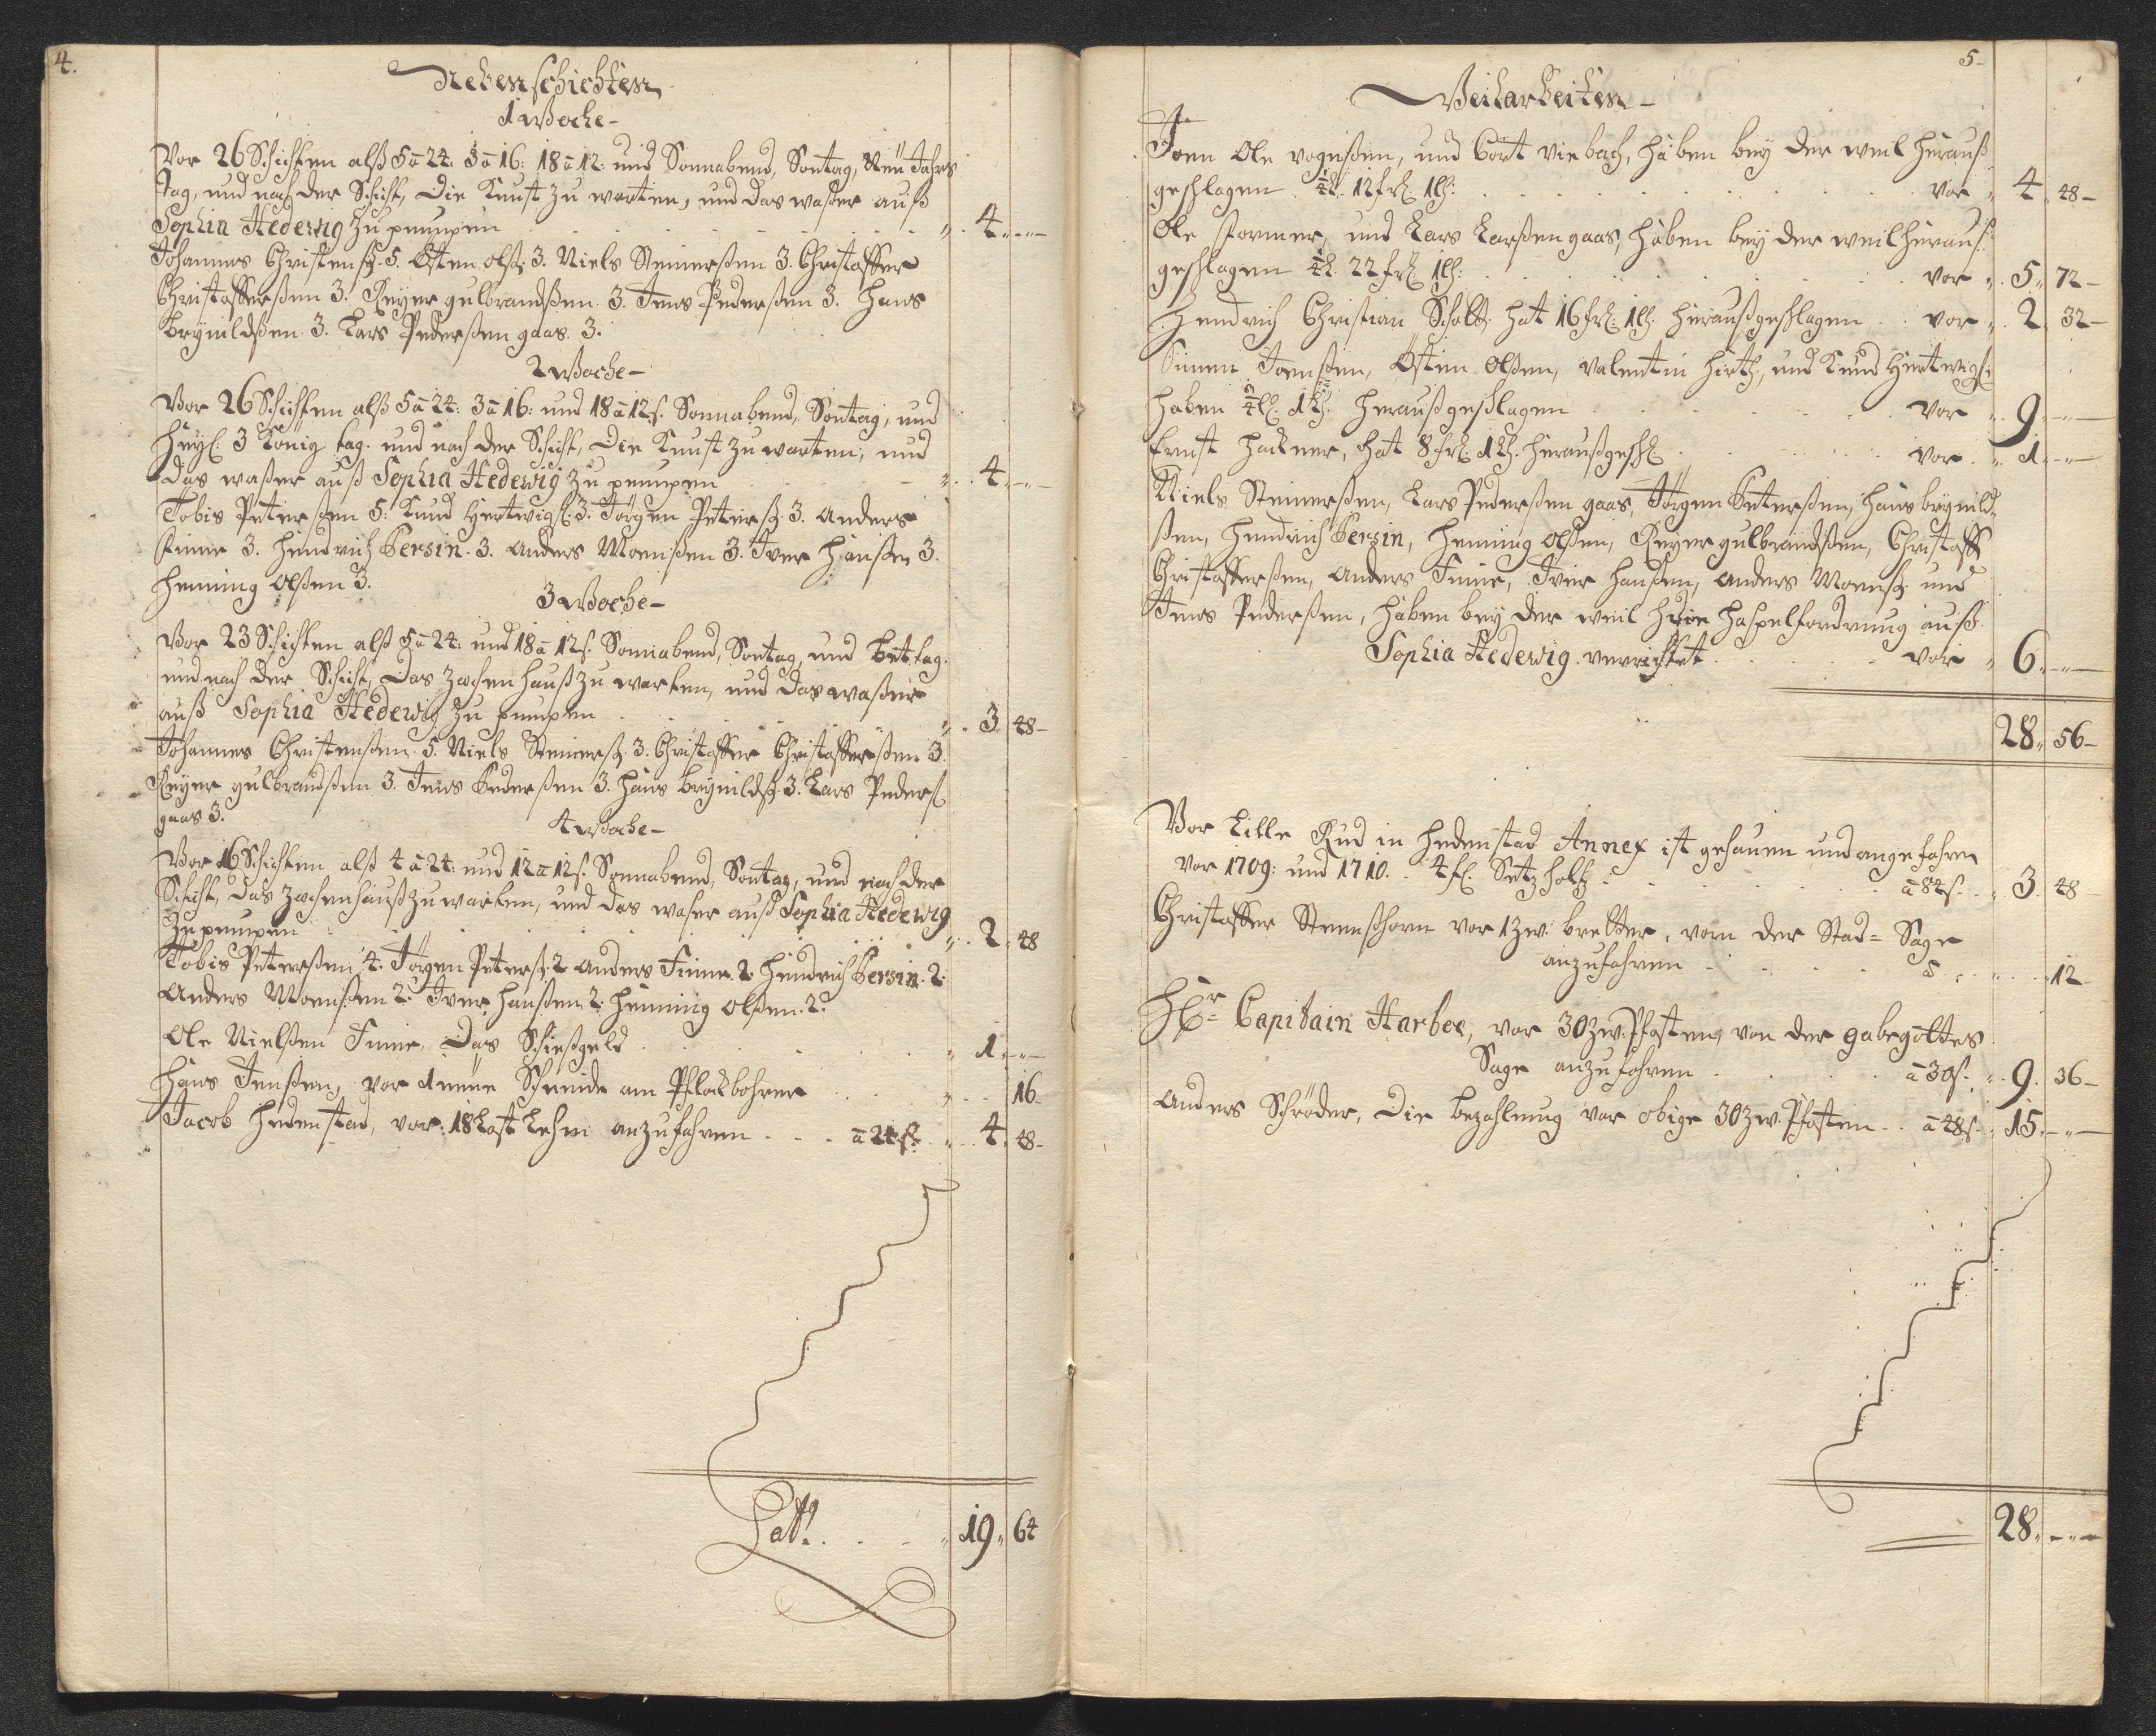 4.
Nebenschichten
1 Woche -
Vor 26 Schichten alß 5 a 24: 3 a 16: 18 a 12: und Sonnabend, Sontag, Neu Jahrs
tag, und nach der Schicht, die Kunst zu warten, und das waßer auß
Sophia Hedewig zu pumpen . . . " 4 " - " -
Johannes Christens: 5. Östen Olß: 3. Niels Steinerßen 3. Christoffer
Christofferßen 3. Reyer gulbrandßen 3. Jens Pederßen 3. Hans
Brynildßen 3. Lars Pederßen gaas 3.
2 Woche -
Vor 26 Schichten alß 5 a 24: 3 a 16: und 18 a 12 s. Sonnabend, Sontag, und
Heyl: 3 König tag. und nach der Schicht, die Kunst zu warten, und
das waßer auß Sophia Hedewig zu pumpen " 4 " - " -
Tobis Peterßen 5: Knud Hertwigs: 3. Jörgen Peterß: 3. Anders
Finne 3. Hendrich Persin 3. Anders Moenßen 3. Iver Hanßen 3.
Henning Olßen 3.
3 Woche -
Vor 23 Schichten alß 5 a 24: und 18 a 12 s. Sonnabend, Sontag, und bettag.
und nach der Schicht, das Zechenhauß zu warten, und das waßer
auß Sophia Hedewig zu pumpen . . . " 3. 48 -
Johannes Christenßen 5. Niels Steinerß: 3. Christoffer Christofferßen 3.
Reyer gulbrandßen 3. Jens Pederßen 3. Hans Brynildß: 3. Lars Pederß:
gaas 3.
4 Woche -
Vor 16 Schichten alß 4 a 24: und 12 a 12 s. Sonnabend, Sontag, und nach der
Schicht, das Zechenhauß zu warten, und das waßer auß Sophia Hedewig
zu pumpen . . . " 2. 48
Tobis Peterßen 4. Jörgen Peterß: 2 Anders Finne 2. Hendrich Persin. 2.
Anders Moenßen 2. Iver Hanßen 2. Henning Olßen. 2.
Ole Nielßen Finne, das Schießgeld . . . " 1 " - " -
Hans Jenßen, vor 1 neue Schneide am Pflockbohrer . . . " 16 -
Jacob Hedenstad, vor 18 Last Lehm anzufahren . . . a 24 s. " 4. 48 -
Latt. . . . " 19 " 64
5 -
Weilarbeiten -
Joen Ole vogerßen, und Cort Viebach, haben bey der weil herauß
geschlagen 12 . . . vor " 4 " 48 -
Ole Former, und Lars Larßen gaas, haben bey der weil herauß
geschlagen 22 . . . vor " 5 " 72 -
Hendrich Christian Schultz hat 16 heraußgeschlagen . . vor " 2 " 32 -
Simen Joenßen, Östen Olßen, Valentin Hirtz, und Knud Hertwigß:
haben heraußgeschlagen . . . vor " 9 " - " -
Ernst Hackner, hat 8 heraußgeschl: . . . vor " 1 " - " -
Niels Steinerßen, Lars Pederßen gaas, Jörgen Peterßen, Hans brynild
ßen, Hendrich Persin, Henning Olßen, Reyer gulbrandßen, Christoff
Christofferßen, Anders Finne, Iver Hanßen, Anders Moenß: und
Jens Pederßen, haben bey der weil die Haspelfordrung auß
Sophia Hedewig verrichtet . . . vor " 6 " - " -
28 " 56 -
Vor Lille Rud in Hedenstad Annex ist gehauen und angefahren
vor 1709: und 1710. . 4 Setzholtz . . . a 84 s. " 3. 48
Christoffer Steenßhorn vor 1 zw: bretter, von der Stad= Sage
anzufahren . . . 12
Hr Capitain Harboe, vor 30 zw. Pfosten, von der gabegottes
Sage anzufahren . . . a 30 s. " 9. 36 -
Anders Schröder, die bezahlung vor obige 30 zw. Pfosten . . a 48 s. " 15 " - " -
28 " - " -